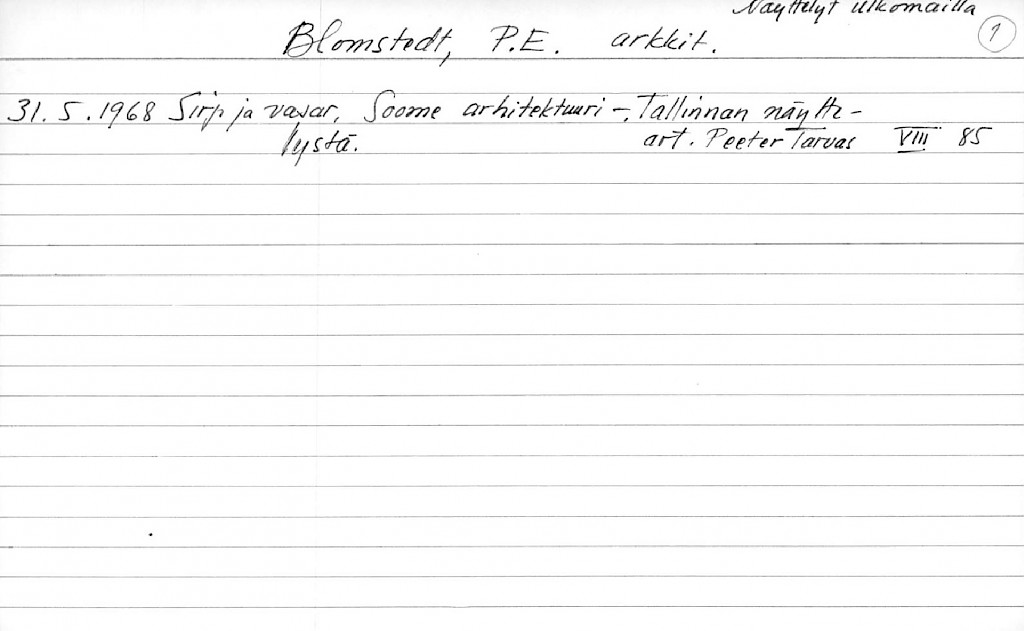 Näyttelyt ulkomailla
Blomstedt, P.E. arkkit. 1
31.5.1968 Sirp ja vasar, Soome arhitektuuri -, Tallinnan näytte-
lystä. art. Peeter Tarvas VIII 85